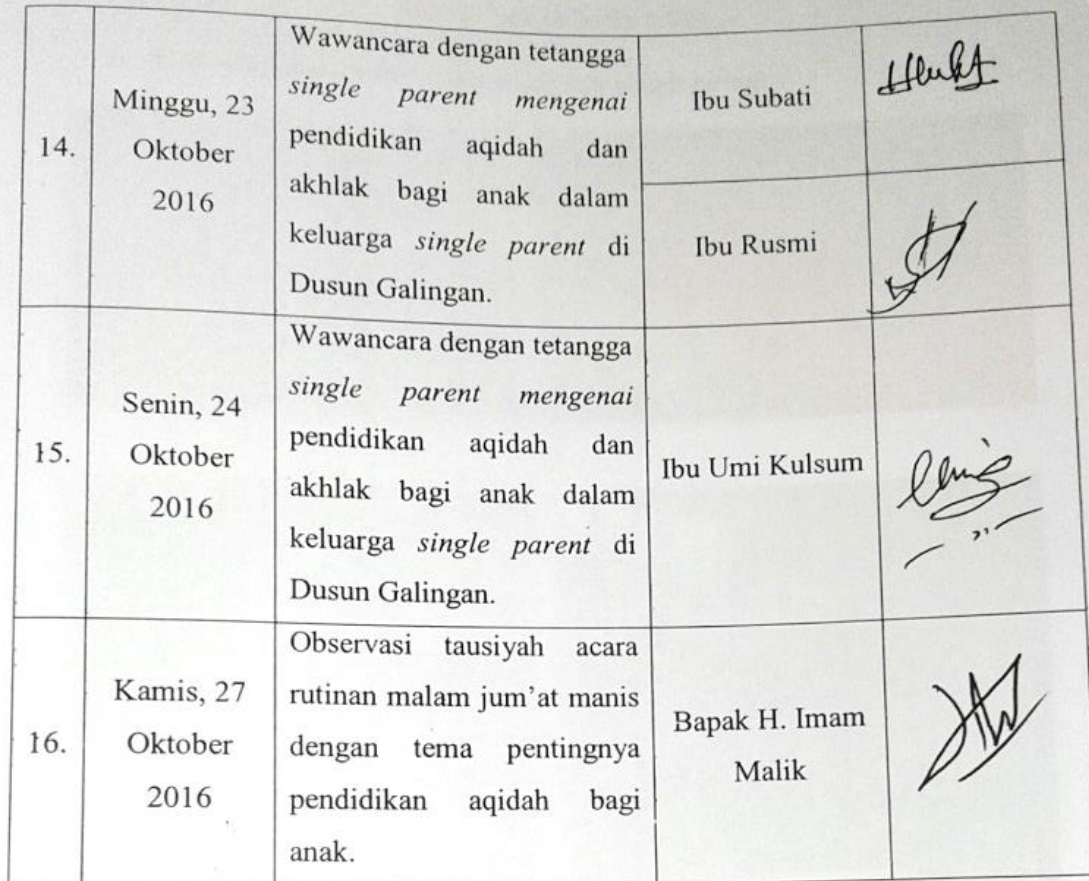 14.
Minggu, 23
Oktober
2016
Wawancara dengan tetangga
single parent mengenai
pendidikan aqidah dan
akhlak bagi anak dalam
keluarga single parent di
Dusun Galingan.
Ibu Subati
Ibu Rusmi
15.
Senin, 24
Oktober
2016
Wawancara dengan tetangga
single parent mengenai
pendidikan aqidah dan
akhlak bagi anak dalam
keluarga single parent di
Dusun Galingan.
Ibu Umi Kulsum
16.
Kamis, 27
Oktober
2016
Observasi tausiyah acara
rutinan malam jum'at manis
dengan tema pentingnya
pendidikan aqidah bagi
anak.
Bapak H. Imam
Malik